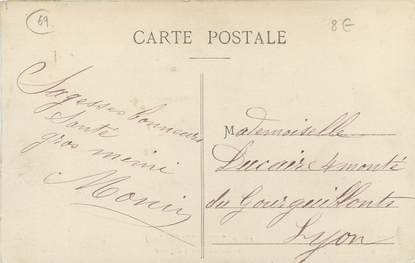 69
8€
CARTE POSTALE
Sagesse bonheur
Santé
gros mimi
Mademoiselle
Ducaire 4 monté
du Gourguillont
Lyon